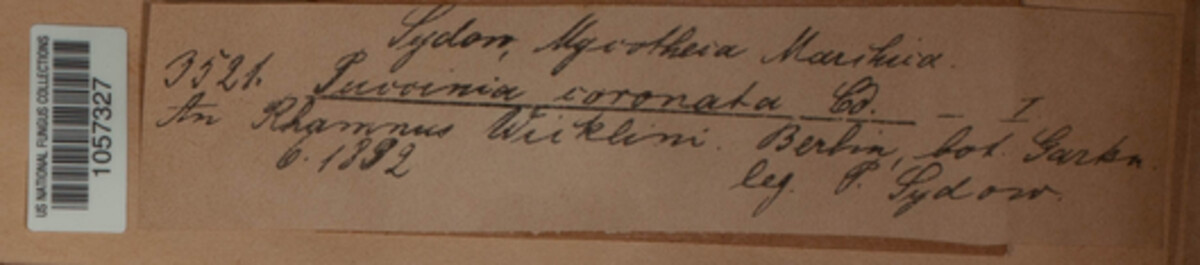 US NATIONAL FUNGUS COLLECTIONS
1057327
Sydow, Mycotheca Marchica.
3521. Puccinia coronata Cd. — I.
An Rhamnus Wicklini. Berlin, bot. Garten.
6. 1892 leg. P. Sydow.